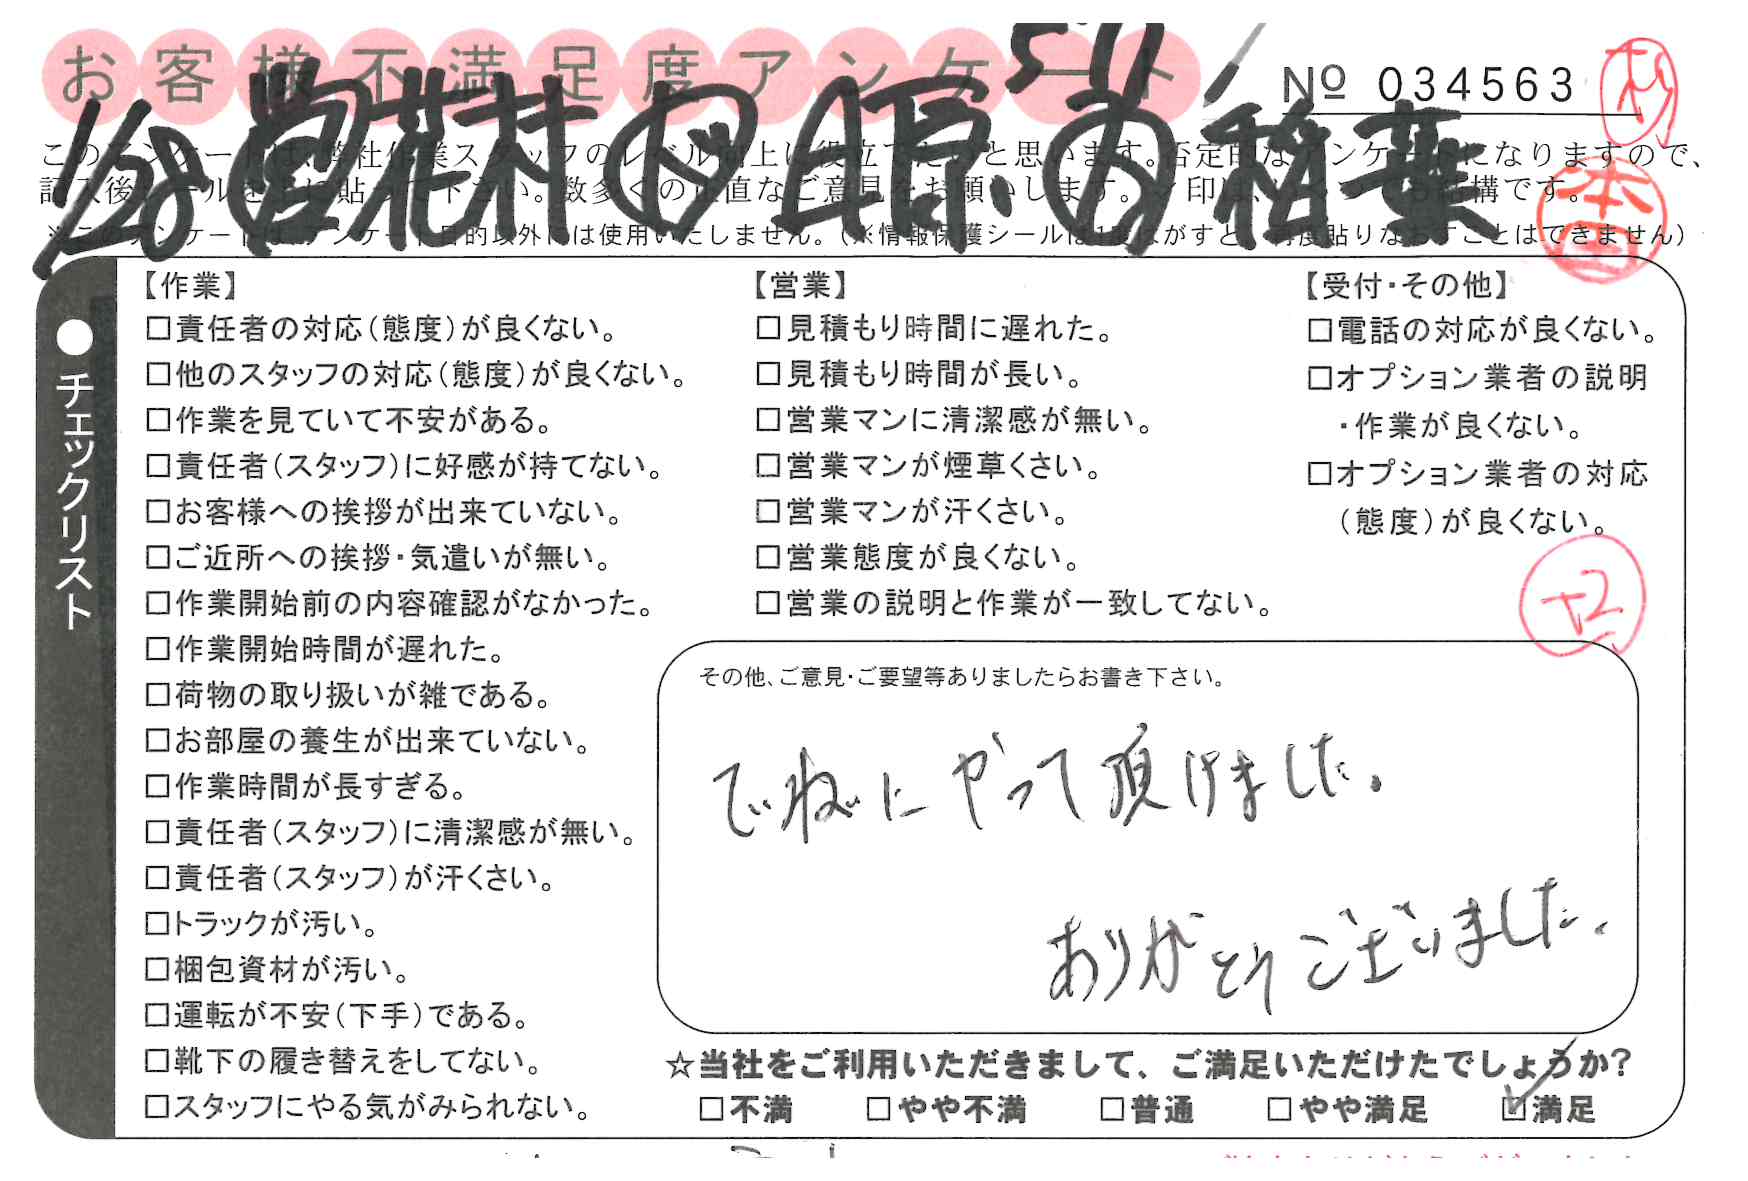 お客様不満足度アンケート
No 034563
このアンケートは、弊社作業スタッフのレベル向上に役立てたいと思います。否定的なアンケートになりますので、
記入後シールを上に貼って下さい。数多くの正直なご意見をお願いします。
※このアンケートは、アンケート目的以外には使用いたしません。(※情報保護シールは1度はがすと、再度貼りなおすことはできません)
1/28
花村
稲葉
●チェックリスト
【作業】
□責任者の対応(態度)が良くない。
□他のスタッフの対応(態度)が良くない。
□作業を見ていて不安がある。
□責任者(スタッフ)に好感が持てない。
□お客様への挨拶が出来ていない。
□ご近所への挨拶・気遣いが無い。
□作業開始前の内容確認がなかった。
□作業開始時間が遅れた。
□荷物の取り扱いが雑である。
□お部屋の養生が出来ていない。
□作業時間が長すぎる。
□責任者(スタッフ)に清潔感が無い。
□責任者(スタッフ)が汗くさい。
□トラックが汚い。
□梱包資材が汚い。
□運転が不安(下手)である。
□靴下の履き替えをしてない。
□スタッフにやる気がみられない。
【営業】
□見積もり時間に遅れた。
□見積もり時間が長い。
□営業マンに清潔感が無い。
□営業マンが煙草くさい。
□営業マンが汗くさい。
□営業態度が良くない。
□営業の説明と作業が一致してない。
【受付・その他】
□電話の対応が良くない。
□オプション業者の説明
・作業が良くない。
□オプション業者の対応
(態度)が良くない。
その他、ご意見・ご要望等ありましたらお書き下さい。
でいねいにやって頂けました。
ありがとうございました。
☆当社をご利用いただきまして、ご満足いただけたでしょうか?
□不満 □やや不満 □普通 □やや満足 ☑満足